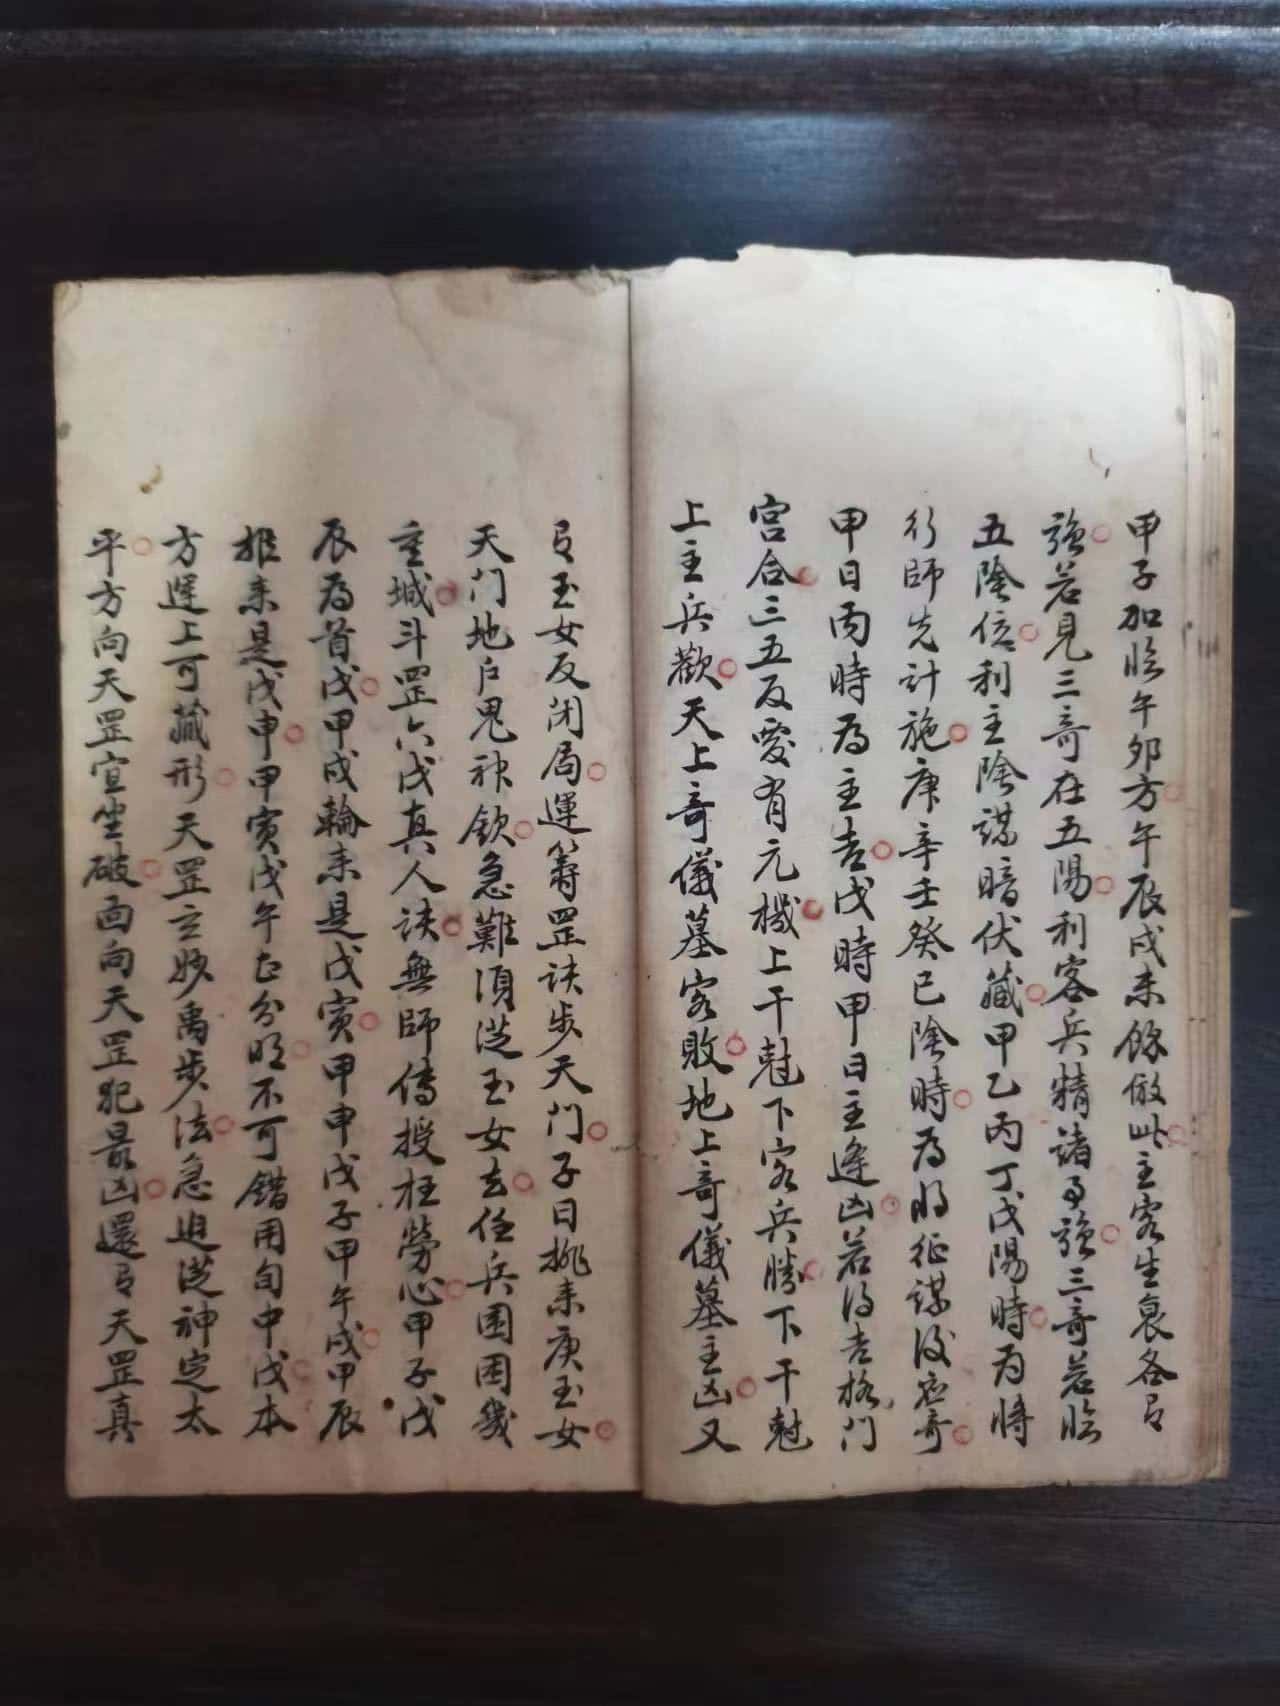 甲子加臨午卯方午辰戌未餘倣此主客生衰各有
強若見三奇在五陽利客兵精諸事強三奇若臨
五陰位利主陰謀暗伏藏甲乙丙丁戊陽時為將
行師先計施庚辛壬癸己陰時為將征謀後應奇
甲日丙時為主吉戊時甲日主逢凶若得吉格門
宮合三五反愛有元機上干尅下客兵勝下干尅
上主兵歡天上奇儀墓客敗地上奇儀墓主凶又
有玉女反闭局運籌罡訣步天门子日挑来庚玉女
天门地户鬼神欽急難須從玉女去任兵围困幾
重城斗罡六戊真人訣無師傳授枉勞心甲子戊
辰為首戊甲戌輪来是戊寅甲申戊子甲午戌甲辰
推来是戊申甲寅戊午正分明不可錯用旬中戊本
方遅上可藏形天罡立妙禹步法急迫從神定太
平方向天罡宜坐破面向天罡犯最凶還有天罡真